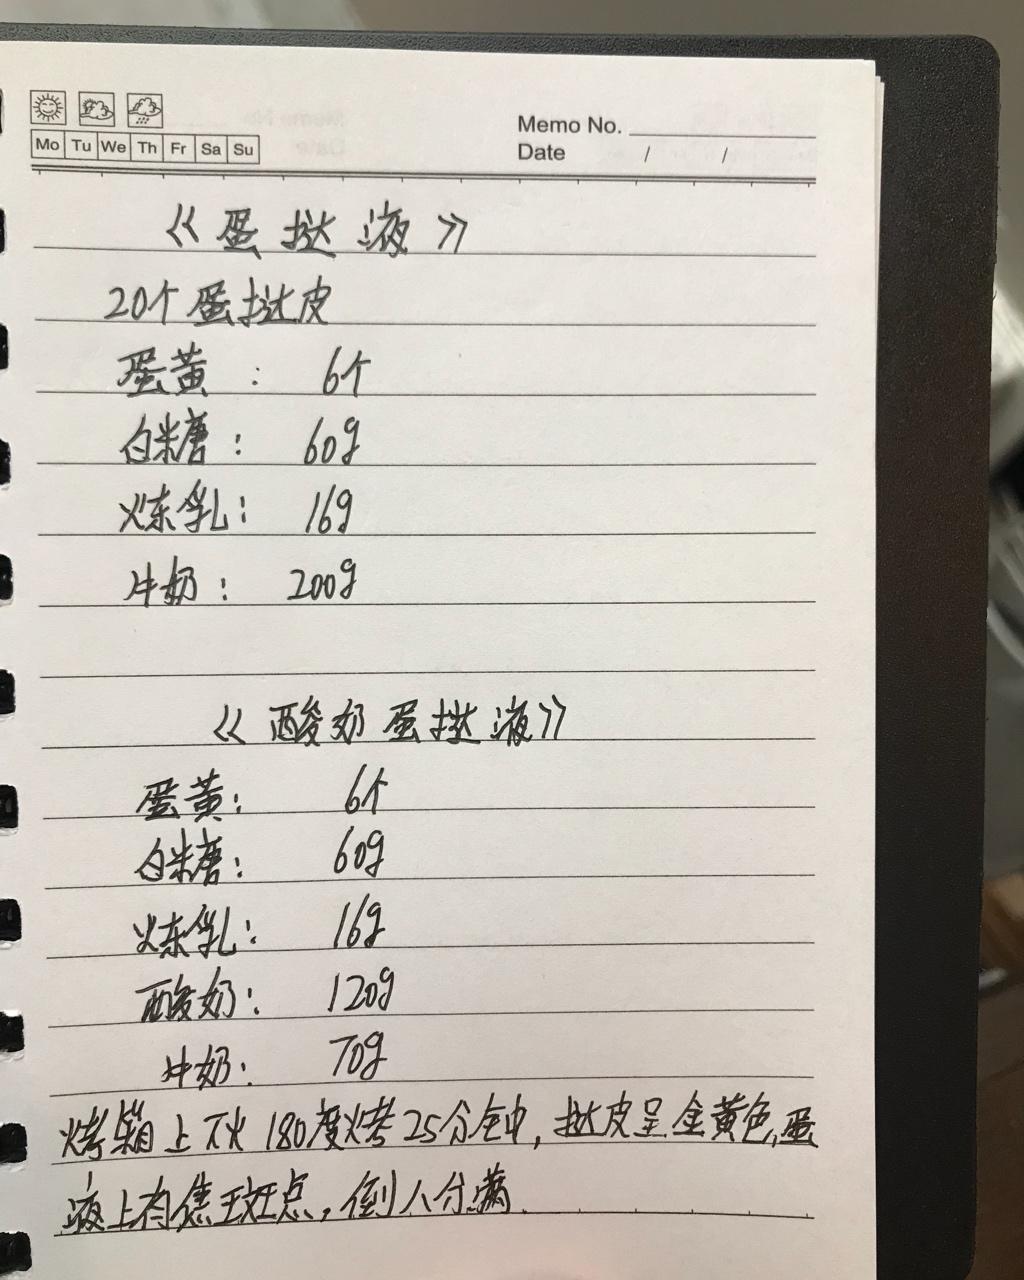 Mo Tu We Th Fr Sa Su
Memo No.
Date / /
《蛋挞液》
20个蛋挞皮
蛋黄: 6个
白米糖: 60g
炼乳: 16g
牛奶: 200g
《酸奶蛋挞液》
蛋黄: 6个
白米糖: 60g
炼乳: 16g
酸奶: 120g
牛奶: 70g
烤箱上下火180度烤25分钟,挞皮呈金黄色,蛋
液上有焦斑点,倒八分满.